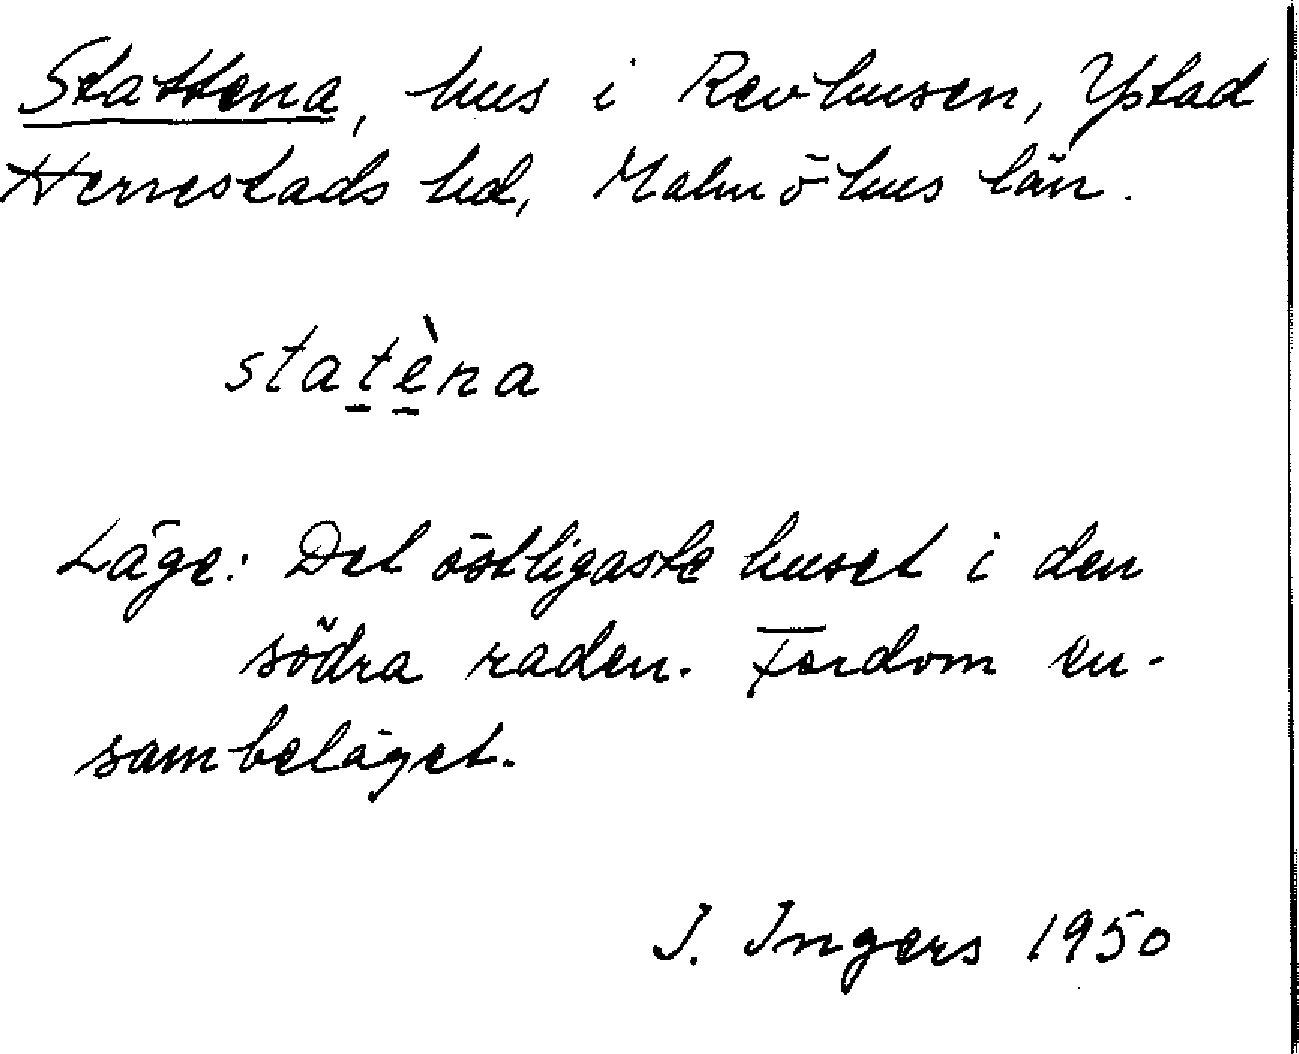 Stattena, hus i Revhusen, Ystad
Herrestads hd, Malmöhus län.
statèna
Läge: Det östligaste huset i den
södra raden. Fordom en-
sambeläget.
I. Ingers 1950